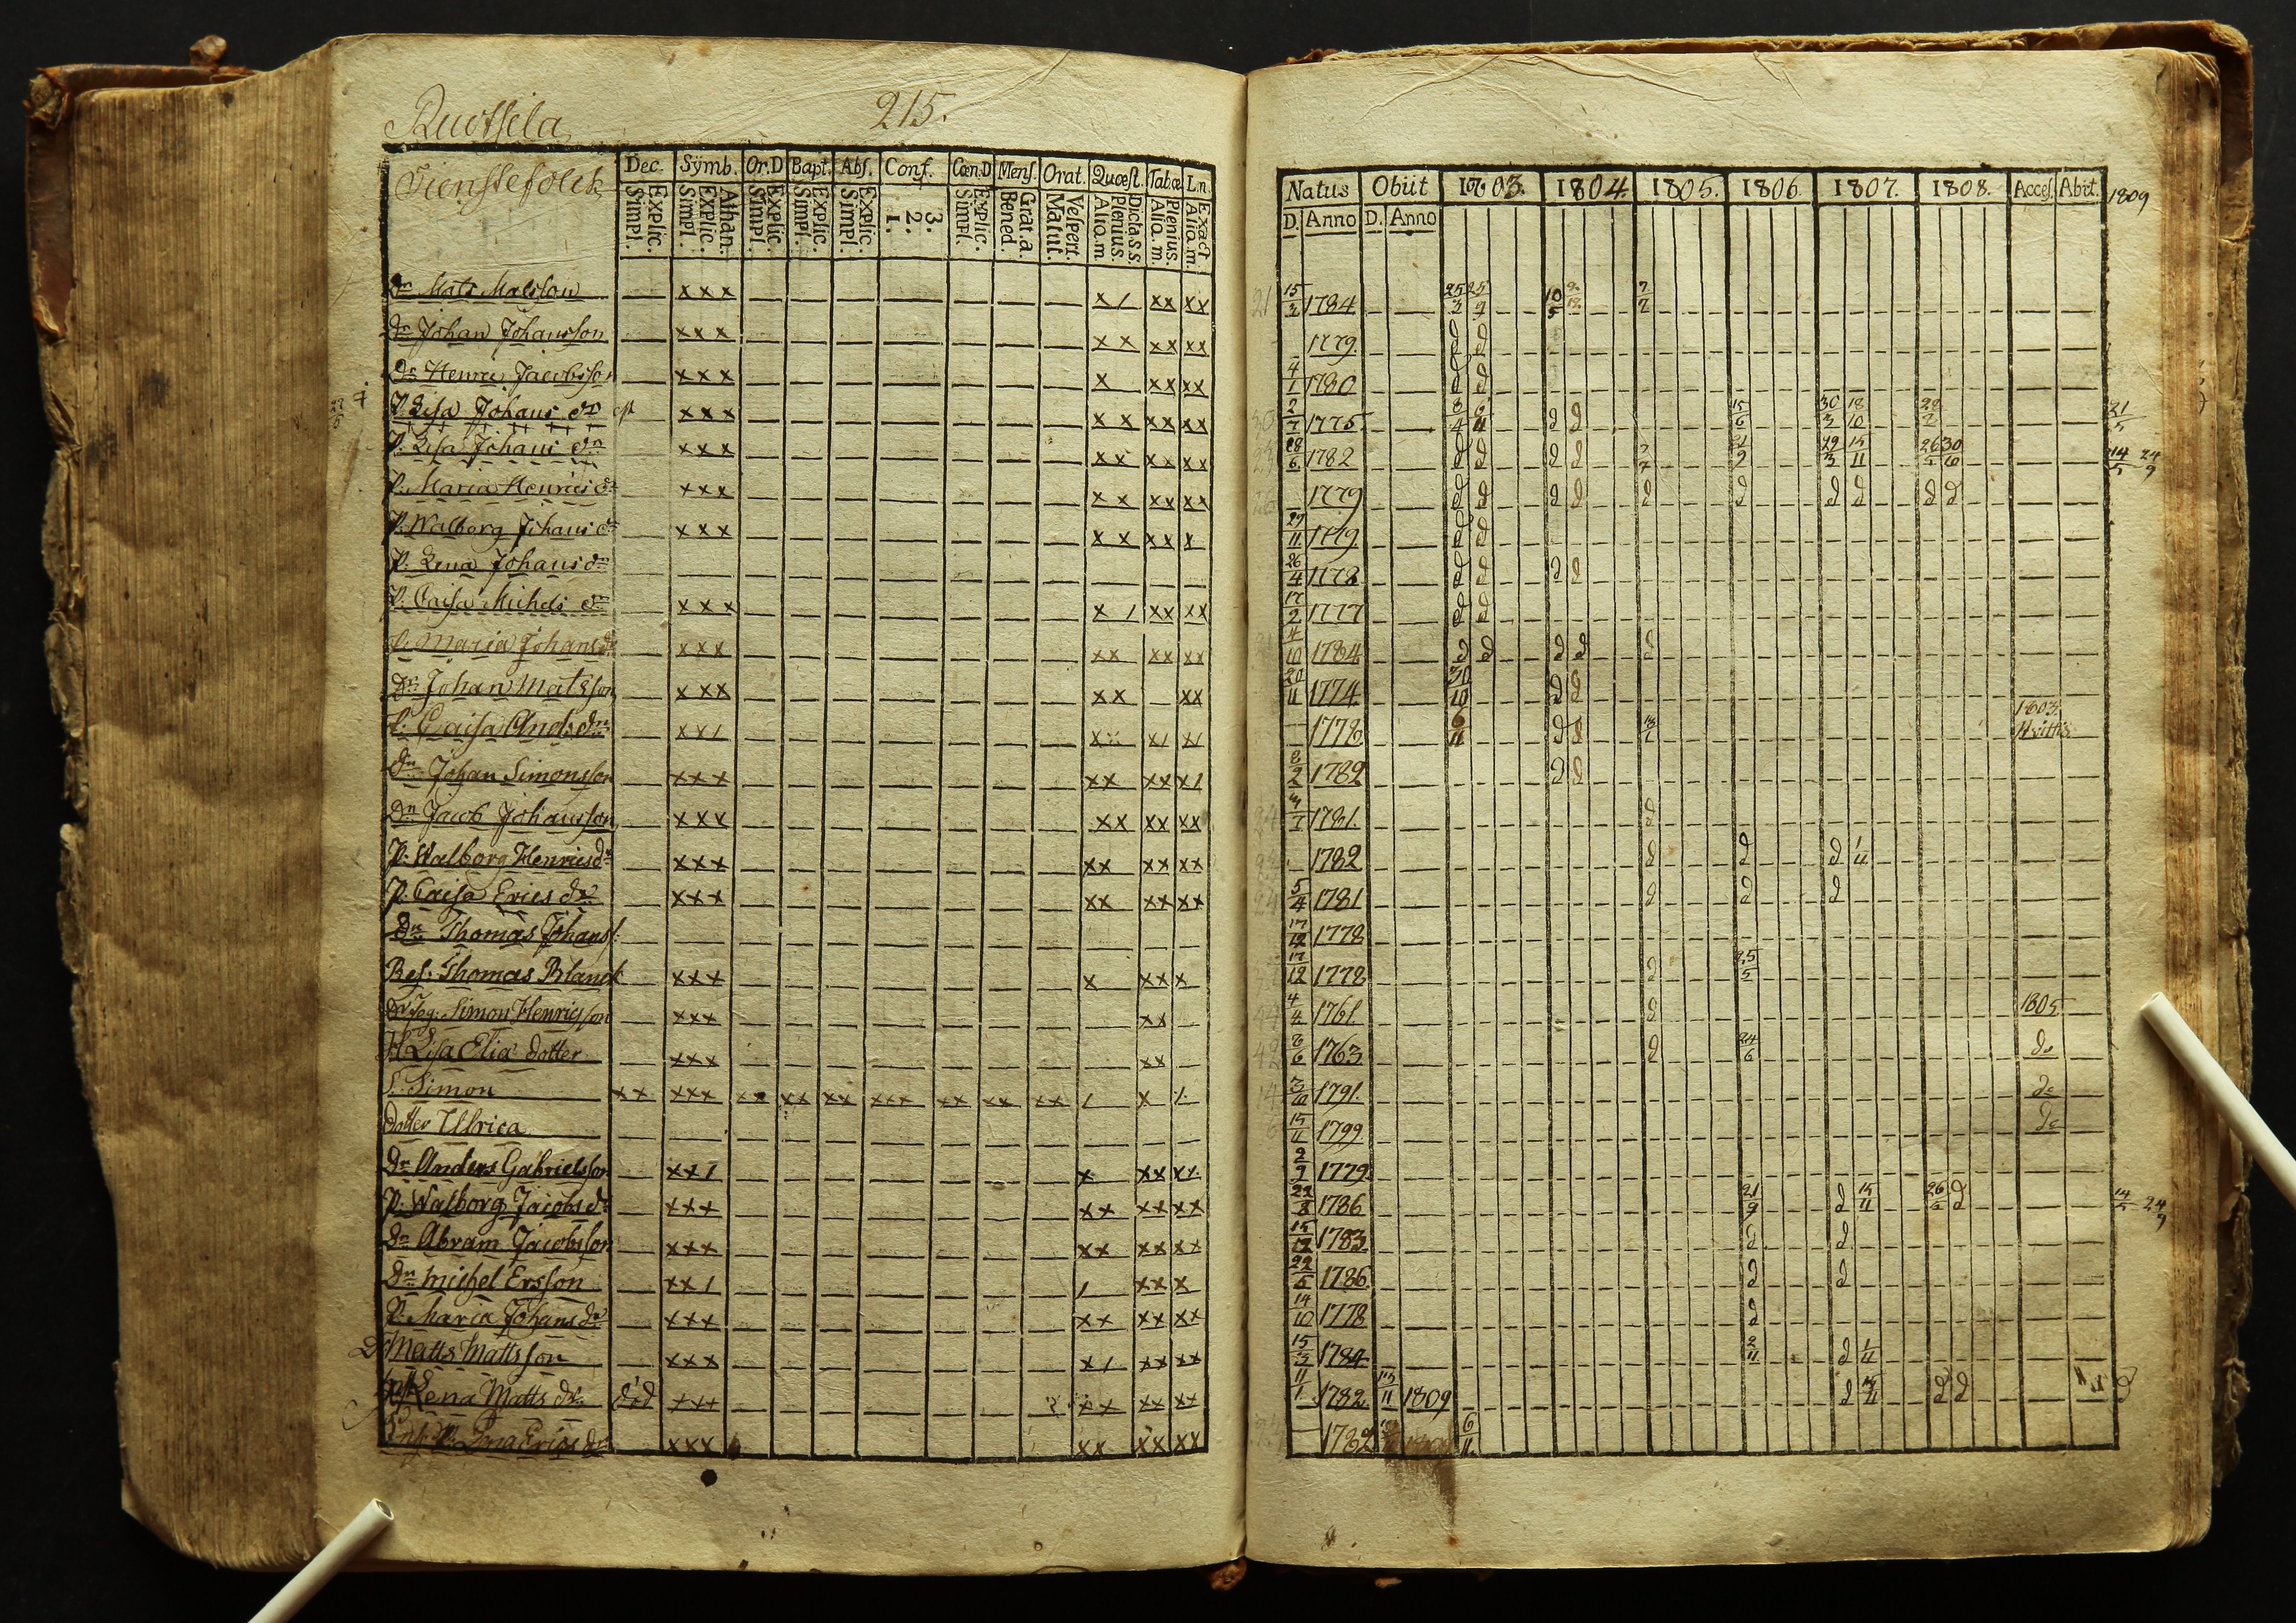 Ruotsila
215.
Dienstefolck
Dec. Symb. Or.D Bapt. Abs. Conf. Cœn.D Mens. Orat. Quæst. Tabœ L.n.
Explic. Simpl. Athan. Explic. Simpl. Explic. Simpl. Explic. Simpl. Explic. Simpl. 3. 2. 1. Explic. Simpl. Grat. a. Bened. Vespert. Matut. Dicta s.s. Plenius. Alio. m. Plenius. Alia. m. Exact. Alia. m.
Dn Mats Matsson
Dn Johan Johansson
Dn Henric Jacobsson
P. Lisa Johans dr
P. Lisa Johans dr
P. Maria Henrics dr
P. Walborg Johans dr
P. Lena Johans dr
P. Caisa Michels dr
P. Maria Johans dr
Dn Johan Matsson
P. Caisa And: dr
Dn Johan Simonsson
Dn Jacob Johansson
P. Walborg Henrics dr
P. Caisa Erics dr
Dn Thomas Johanss:
Res: Thomas Blanck
Simon Henricsson
H. Lisa Elia dotter
S. Simon
dotter Ulrica
Dn Anders Gabrielsson
P. Walborg Jacobs dr
Dn Abram Jacobsson
Dn Michel Ersson
P. Maria Johans dr
Dn Matts Mattsson
Lena Matts dr död
Natus Obiit 1803. 1804. 1805. 1806. 1807. 1808. Acces. Abit. 1809
D. Anno D. Anno
15/3 1784 25/3 25/9 10/5
1779 d d
4/1 1780 d d
2/7 1775 8/4 6/11 d d 15/6 30/3 18/10 21/5
28/6 1782 d d d d 21/9 29/3 15/11 26/5 30/10 14/5 24/9
1779 d d d d d d d d d d
29/11 1779 d d
26/4 1778 d d d d
17/2 1777 d d
4/10 1784 d d d d d
20/11 1774 30/10 d d
1778 6/11 d d 1803.
8/2 1782 d d
1781. d
1782 d d d 1/11
5/4 1781 d d d
17/12 1778
17/12 1778 d 25/5
4/4 1761 d 1805
8/6 1763 d 24/6 do
3/10 1791. do
15/11 1799 do
2/9 1779.
22/8 1786 21/9 d 15/11 26/5 d 14/5 24/9
15/12 1783 d d
22/5 1786. d d
14/10 1778 d
15/3 1784 2/11 d 1/11
11/1 1782 13/11 1809 d 15/11 d d
1782 6/11